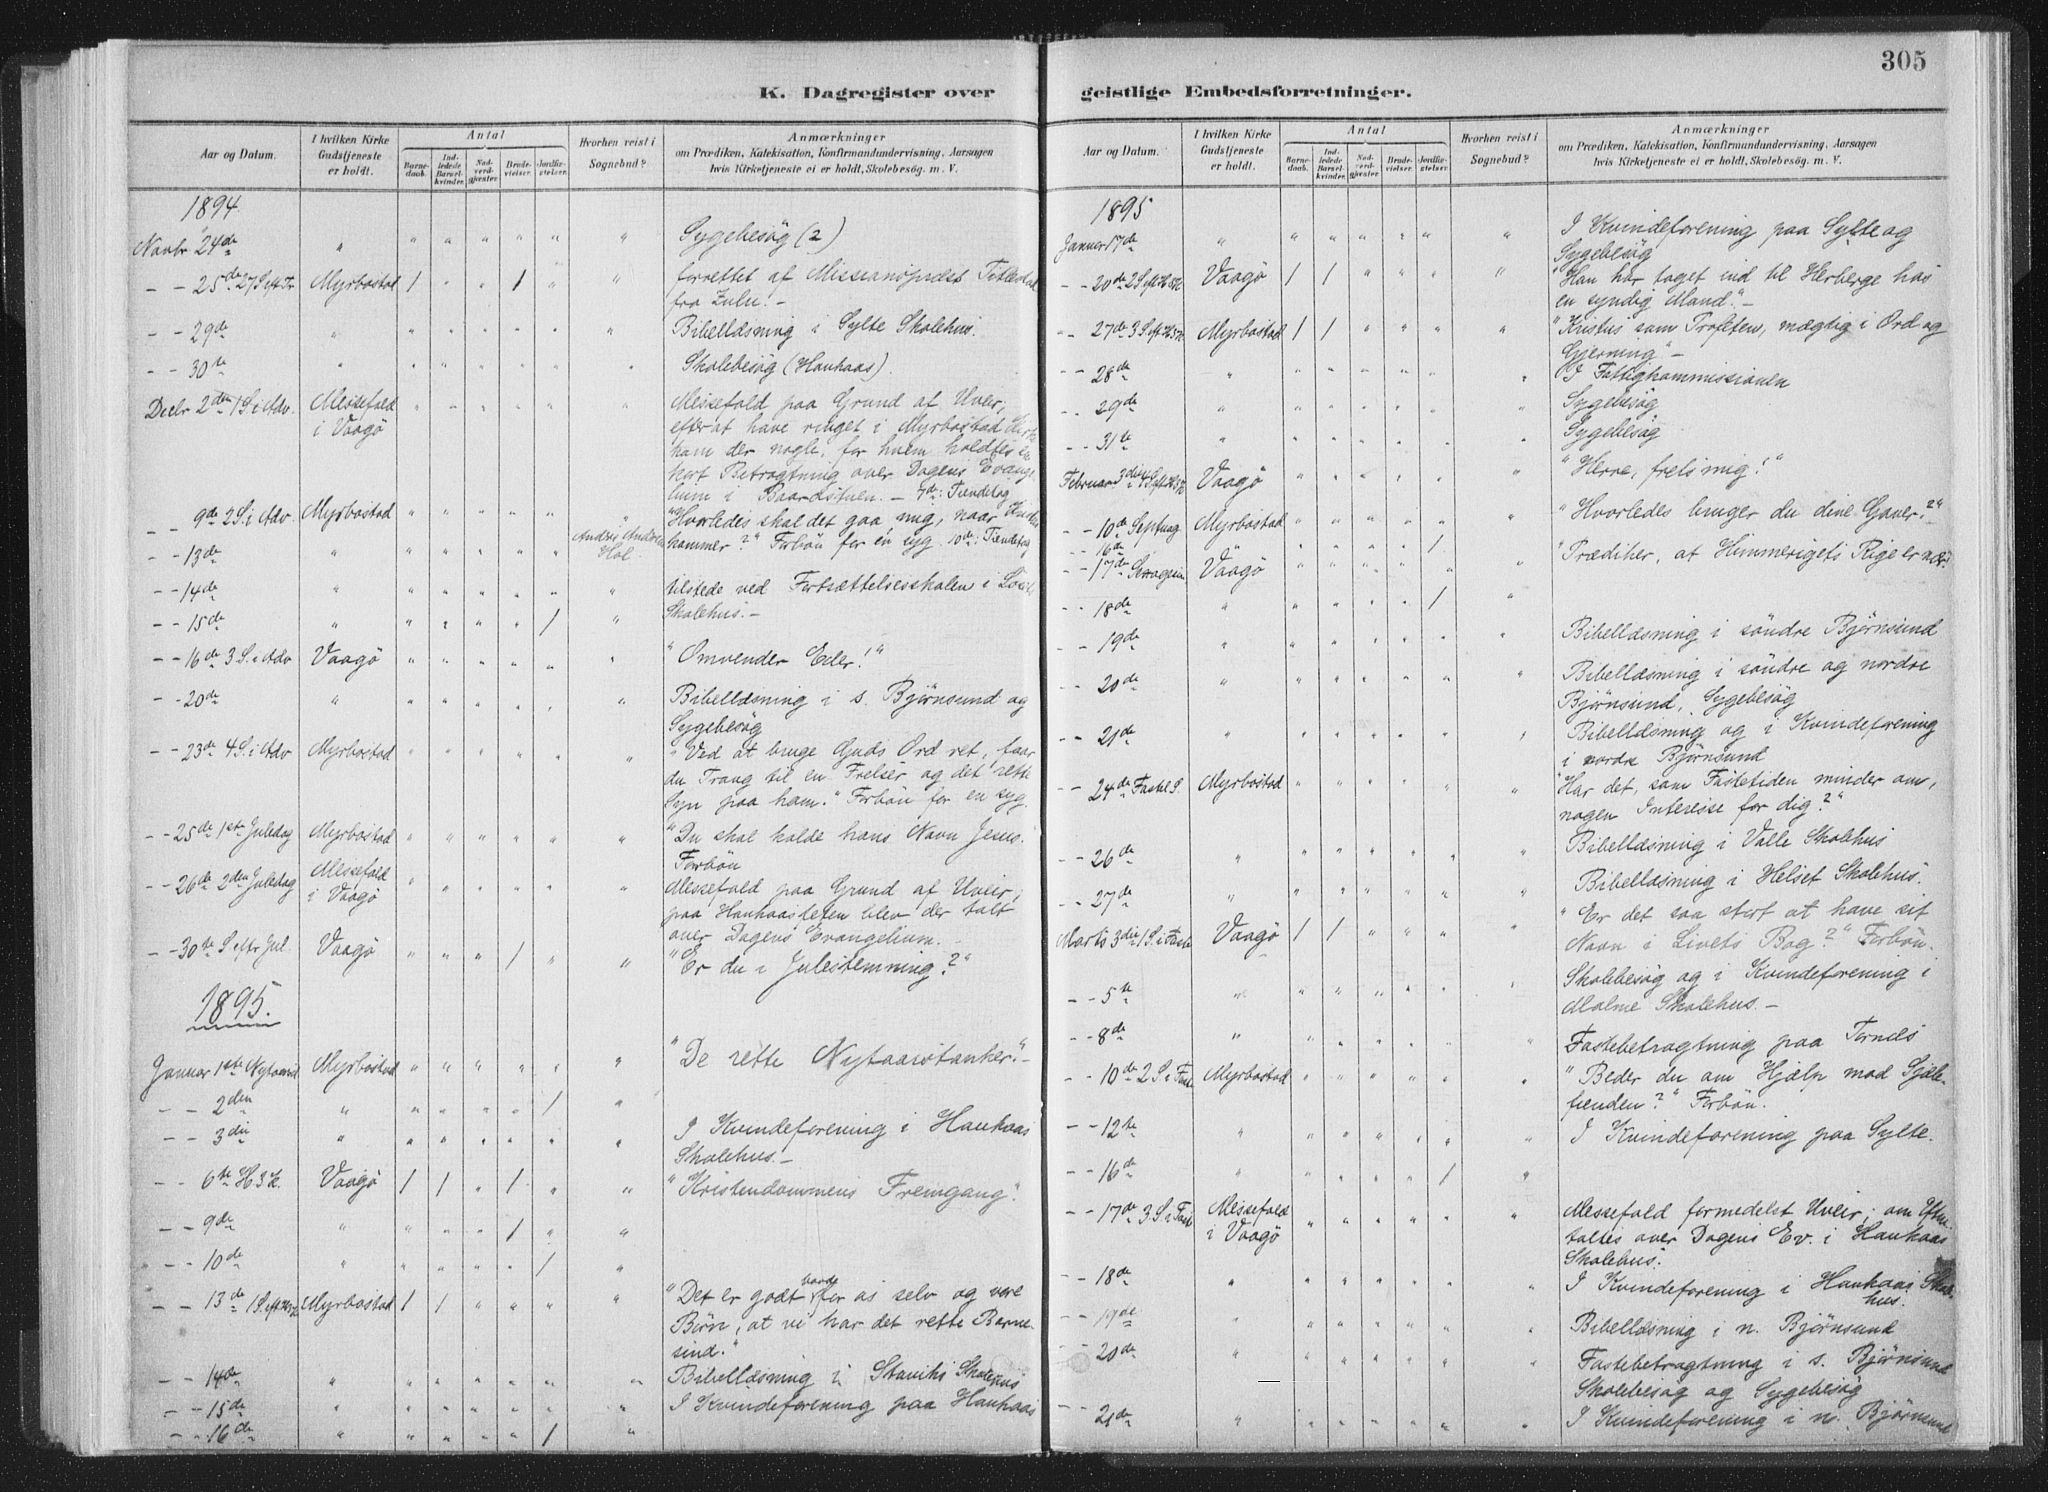 305
K. Dagregister over geistlige Embedsforretninger.
Aar og Datum.
I hvilken Kirke Gudstjeneste er holdt.
Antal
Barnedaab.
Indledede Barselkvinder.
Nadverdgjester.
Brudevielser.
Jordfæstelser.
Hvorhen reist i Sognebud?
Anmærkninger
om Prædiken, Katekisation, Konfirmandundervisning, Aarsagen
hvis Kirketjeneste ei er holdt, Skolebesög. m. V.
1894
Novbr 24de " " " " " " " Sygebesög (2)
- - 25de 27 S. eft Tr. Myrbostad / " " / " " forrettet af Missionsprest Titlestad
fra Zulu. -
- - 29de " " " " " " " Bibellæsning i Sylte Skolehus.
- - 30te " " " " " " " Skolebesög (Haukaas).
Decbr 2den 1 S. i Adv. Messefald " " " " " " Messefald paa Grund af Uveir,
i Vaagö efter at have ringet i Myrbostad
kom der nogle, for hvem holdtes en
kort Betragtning over Dagens Evange
lium i - 7de: Tiendetag
- - 9de 2 S. i Adv. Myrbostad " " " " " " "Hvorledes skal det gaa mig, naar
kommer?" Forbön for en syg. 10de: Tiendetag
- - 13de " " " " " " Hol
- - 14de " " " " " " " tilstede ved Fortsættelsesskolen i
- - 15de " " " " " / " Skolehus. -
- - 16de 3 S. i Adv Vaagö " " " " " "Omvender Eder!"
- - 20de " " " " " " " Bibellæsning i s. Björnsund og
Sygebesög
- - 23de 4 S. i Adv Myrbostad " " " " " " "Ved at bruge Guds Ord ret, faar
du Trang til en Frelser og det rette
Syn paa ham." Forbön for en syg.
- - 25de 1ste Juledag Myrbostad " " " " " " "Du skal kalde hans Navn Jesus.
Forbön
- - 26de 2den Juledag Messefald " " " " " " Messefald paa Grund af Uveir,
i Vaagö paa Haukaasleten blev der talt
over Dagens Evangelium. -
- 30te S. eftr Jul. Vaagö " " " / " " "Er du i Julestemning?"
1895.
Januar 1ste Nytaarsd Myrbostad " " " " " " "De rette Nytaarstanker." -
- - 2den " " " " " / "
- - 3die " " " " " " " I Kvindeforening i Haukaas
Skolehus. -
- - 6te H3K. Vaagö / / " / " " "Kristendommens Fremgang".
- - 9de " " " " / " "
- - 10de " " " " " / "
- - 13de 1 S. eft H3K Myrbostad / / " " " " "Det er godt baade for os selv og vore
Börn, at vi har det rette Barne-
sind."
- - 14de " " " " " " " Bibellæsning i Staviks Skolehus
- - 15de " " " " " " " I Kvindeforening paa Haukaas
- - 16de " " " " " / "
Aar og Datum.
I hvilken Kirke Gudstjeneste er holdt.
Antal
Barnedaab.
Indledede Barselkvinder.
Nadverdgjester.
Brudevielser.
Jordfæstelser.
Hvorhen reist i Sognebud?
Anmærkninger
om Prædiken, Katekisation, Konfirmandundervisning, Aarsagen
hvis Kirketjeneste ei er holdt, Skolebesög. m. V.
1895
Januar 17de " " " " " " " I Kvindeforening paa Sylte og
Sygebesög
- - 20de 2 S. eft H3K Vaagö / / " " " " "Han har taget ind til Herberge hos
en syndig Mand." -
- - 27de 3 S. eft H3K Myrbostad / / " " " " "Kristus som Profeten, mægtig i Ord og
Gjerning" -
- - 28de " " " " " " " I Fattigkommissionen
- - 29de " " " " " " " Sygebesög
- - 31te " " " " " " Sygebesög
Februar 3die 4 S. eft H3K Vaagö " " " " " " "Herre, frels mig!"
- - 10de Septuag Myrbostad " " " " " " "Hvorledes bruger du dine Gaver?"
- - 16de " " " " /
- - 17de Vaagö " " " " " " "Prædiker, at Himmerigets Rige er nær."
- - 18de " " " " " / "
- - 19de " " " " " " " Bibellæsning i söndre Björnsund
- - 20de " " " " " " " Bibellæsning i söndre og nordre
Björnsund, Sygebesög
- - 21de " " " " " " " Bibellæsning og i Kvindeforening
i nordre Björnsund
- - 24de Fastel S. Myrbostad " " " " " " "Har det, som Fastetiden minder om,
nogen Interesse for dig?"
- - 26de " " " " " " " Bibellæsning i Valle Skolehus
- - 27de " " " " " " " Bibellæsning i Helset Skolehus.
Marts 3die 1 S. i Faste Vaagö / / " " " " "Er det saa stort at have sit
Navn i Livets Bog?" Forbön.
- - 5te " " " " " " " Skolebesög og i Kvindeforening i
Malme Skolehus. -
- - 8de " " " " " " " Fastebetragtning paa Tornes
- - 10de 2 S. i Faste Myrbostad " " " " " " "Beder du om Hjælp mod Sjæle-
fienden?" Forbön.
- - 12te " " " " " " " I Kvindeforening paa Sylte.
- - 16de " " " " " / "
- - 17de 3 S. i Faste Messefald " " " " " " Messefald formedelst Uveir; om Eftm.
i Vaagö taltes over Dagens Ev. i Haukaas
Skolehus.
- - 18de " " " " " " " I Kvindeforening i Haukaas Skole-
hus.
- - 19de " " " " " " " Bibellæsning i n. Björnsund
- - 20de " " " " " " " Fastebetragtning i s. Björnsund
Skolebesög og Sygebesög
- - 21de " " " " " " " I Kvindeforening i n. Björnsund